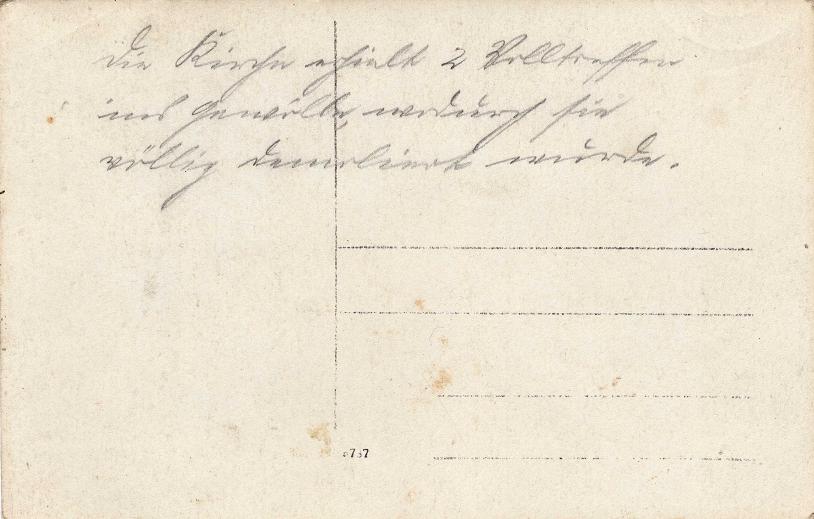 Die Kirche erhielt 2 Volltreffer
ins Gewölbe, wodurch sie
völlig demoliert wurde.